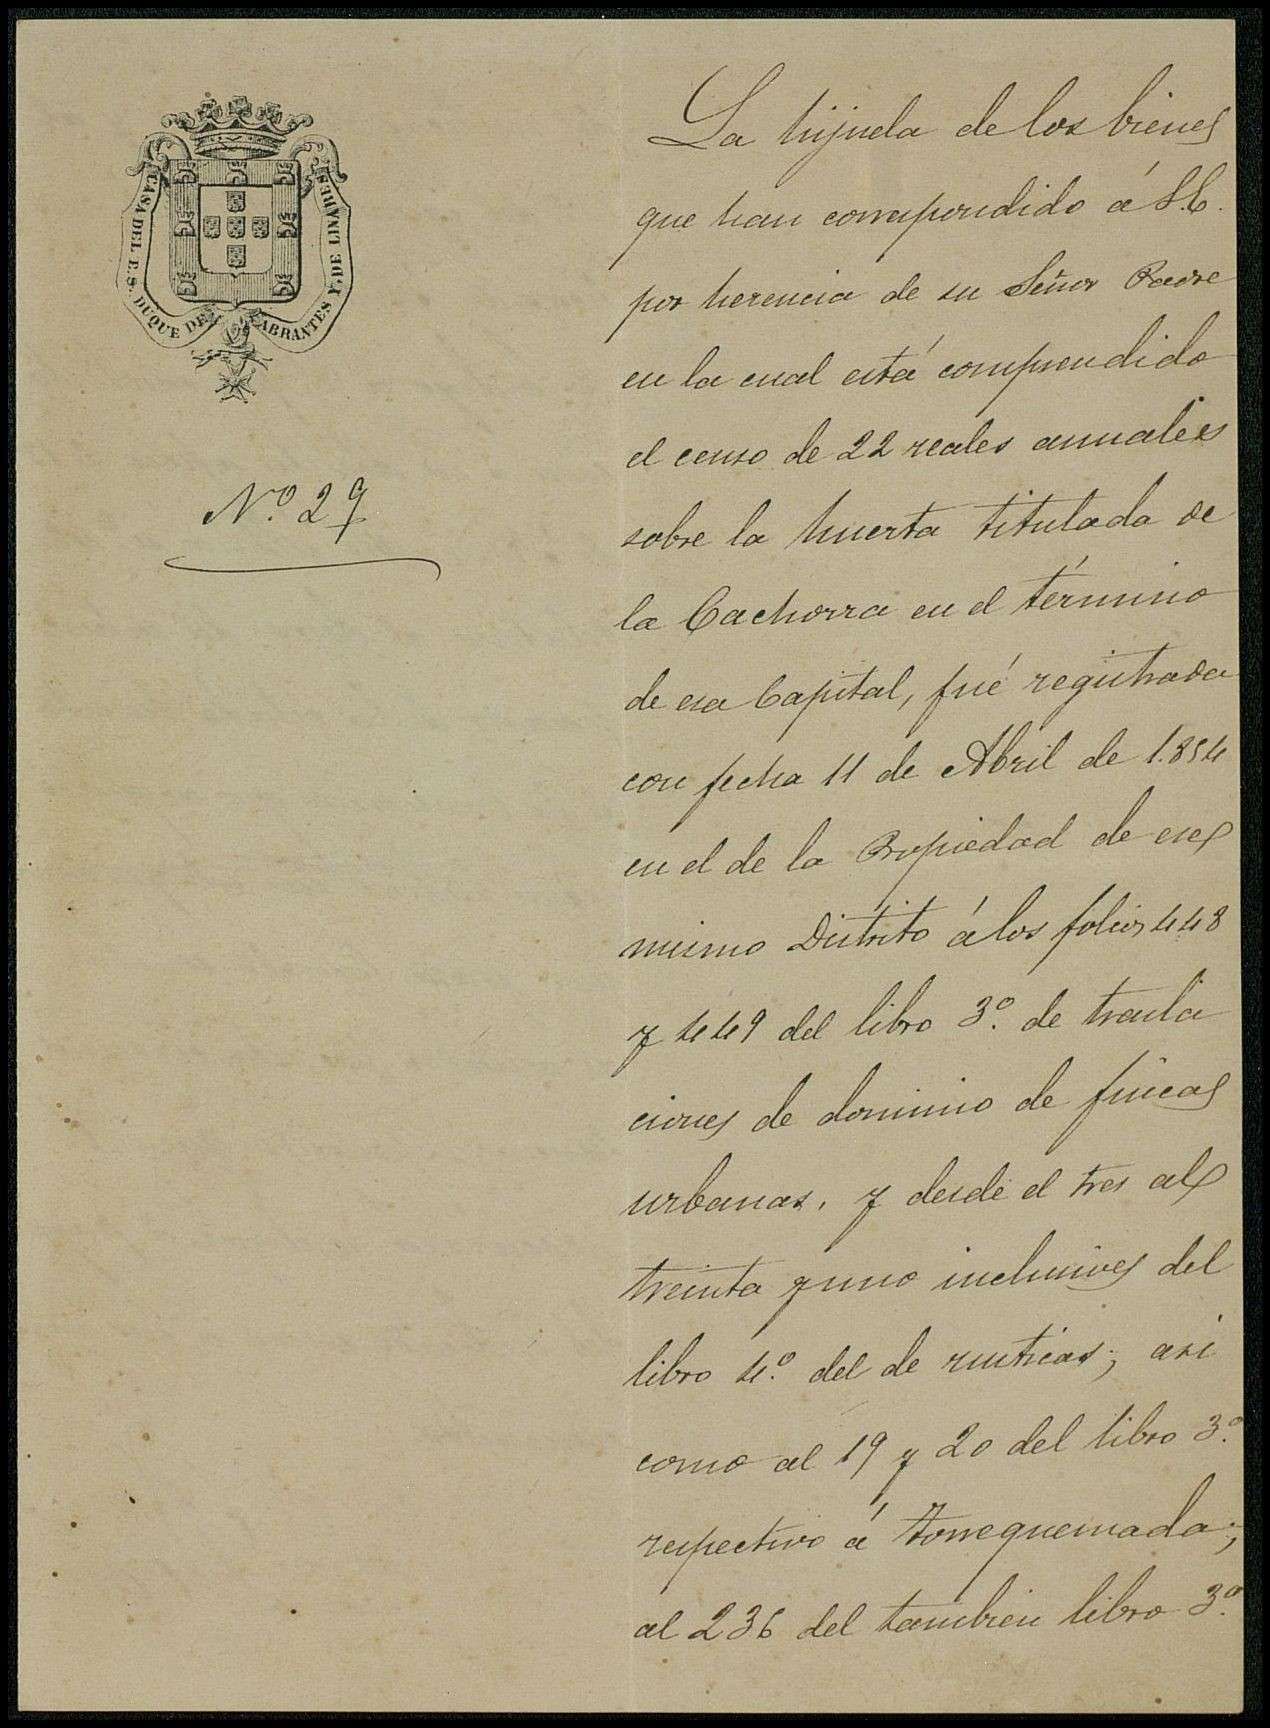 CASA DEL E.S. DUQUE DE ABRANTES Y DE LINARES
N.º 29
La hijuela de los bienes
que han correspondido á S.E.
por herencia de su Señor Padre
en la cual está comprendido
el censo de 22 reales annuales
sobre la huerta titulada de
la Cachorra en el término
de esa Capital, fué registrada
con fecha 11 de Abril de 1.854
en el de la Propiedad de ese
mismo Distrito á los folios 448
y 449 del libro 3.º de trasla
ciones de dominio de fincas
urbanas, y desde el tres al
treinta y uno inclusives del
libro 4.º del de rusticas; asi
como al 19 y 20 del libro 3.º
respectivo á Torrequemada;
al 236 del tambien libro 3.º